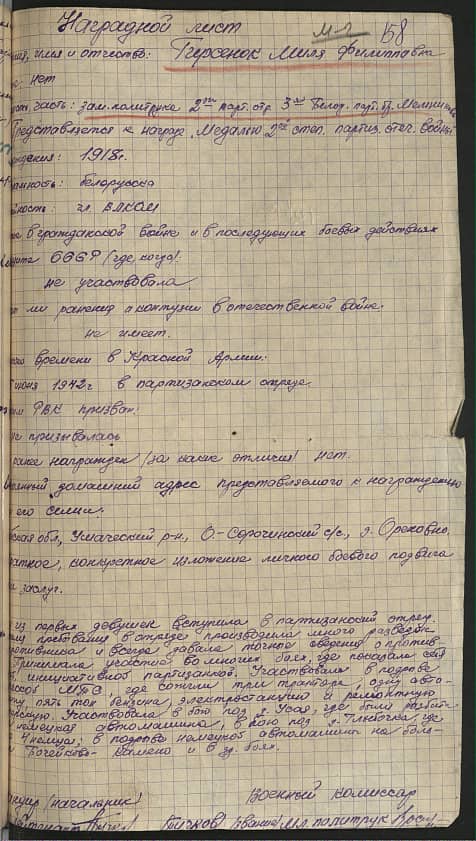 Наградной лист
м-2 158
имя и отчество: Герсенок Миля Филипповна
нет
часть: зам. политрука 2го парт. отр. 3ей Белор. парт. бр.
Представляется к награде Медалью 2ой степ. партиз. отеч. войны
рождения: 1918г.
белорусска
чл. ВЛКСМ
в гражданской войне и в последующих боевых действиях
СССР (где, когда)
не участвовала
ли ранения и контузии в отечественной войне:
не имеет.
времени в Красной Армии:
июня 1942г в партизанском отряде.
РВК призван:
не призывалась
ранее награжден (за какие отличия) нет.
домашний адрес представляемого к награждению
его семьи:
обл, Ушачский р-н, О.-Сорочинский с/с, д. Ореховно.
конкретное изложение личного боевого подвига
заслуг.
из первых девушек вступила в партизанский отряд.
пребывания в отряде производила много разведок
противника и всегда давала точные сведения о против-
Принимала участие во многих боях, где показала себя
инициативной партизанкой. Участвовала в подрыве
МТС, где сожгли три трактора, одну авто-
пять тон бензина, электростанцию и ремонтную
Участвовала в бою под д. Усая, где были разбиты
немецкая автомашина, в бою под д. где
4 немца; в подрыве немецкой автомашины на боль-
Бочейково - Камено и в др. боях.
(начальник) Военный комиссар
(звание) Мл. политрук